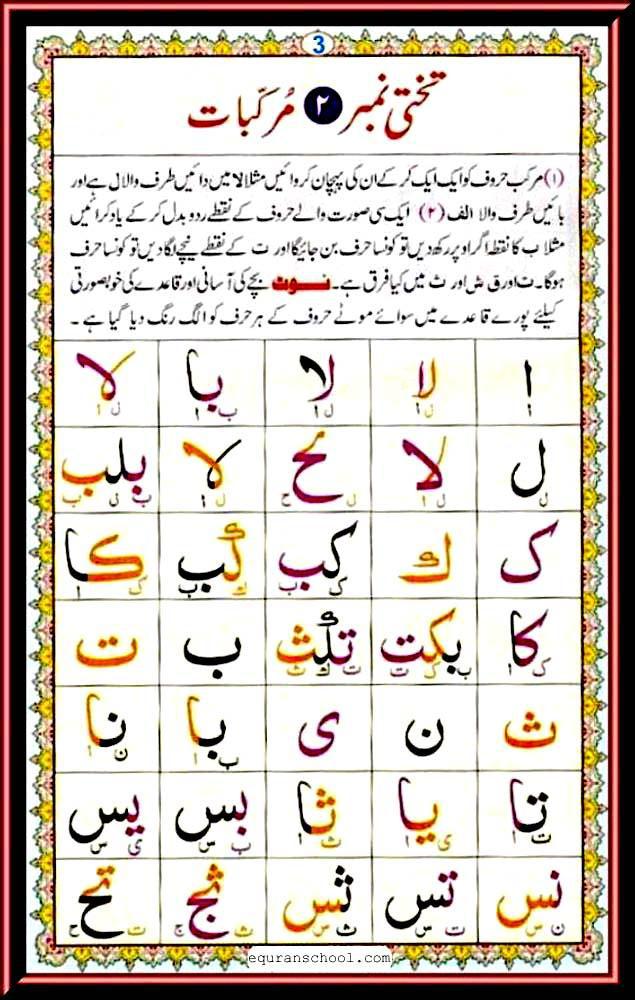 3
تختی نمبر ۲ مُرکّبات
(۱) مرکب حروف کو ایک ایک کر کے ان کی پہچان کروائیں مثلا لا میں دائیں طرف والا ل ہے اور
بائیں طرف والا الف (۲) ایک سی صورت والے حروف کے نقطے ردو بدل کر کے یاد کرائیں
مثلا ب کا نقطہ اگر اوپر رکھ دیں تو کونسا حرف بن جائیگا اور ت کے نقطے نیچے لگا دیں تو کونسا حرف
ہوگا۔ ت اور ق ش اور ث میں کیا فرق ہے۔ نوٹ بچے کی آسانی اور قاعدے کی خوبصورتی
کیلئے پورے قاعدے میں سوائے موٹے حروف کے ہر حرف کو الگ رنگ دیا گیا ہے۔
ا لا لا با لا
ا ل ا ل ا ب ا ل ا
ل لا لح لا بلب
ل ل ا ل ح ل ا ب ل ب
ک ك کب كب کا
ک ب ك ب ک ا
کا بکت تكث ب ت
ک ا ب ک ت ت ك ث
ث ن ی با نا
ب ا ن ا
تا یا ثا بس یس
ت ا ی ا ث ا ب س ی س
نس تس ثس ثج تح
ن س ت س ث س ث ج ت ح
equranschool.com